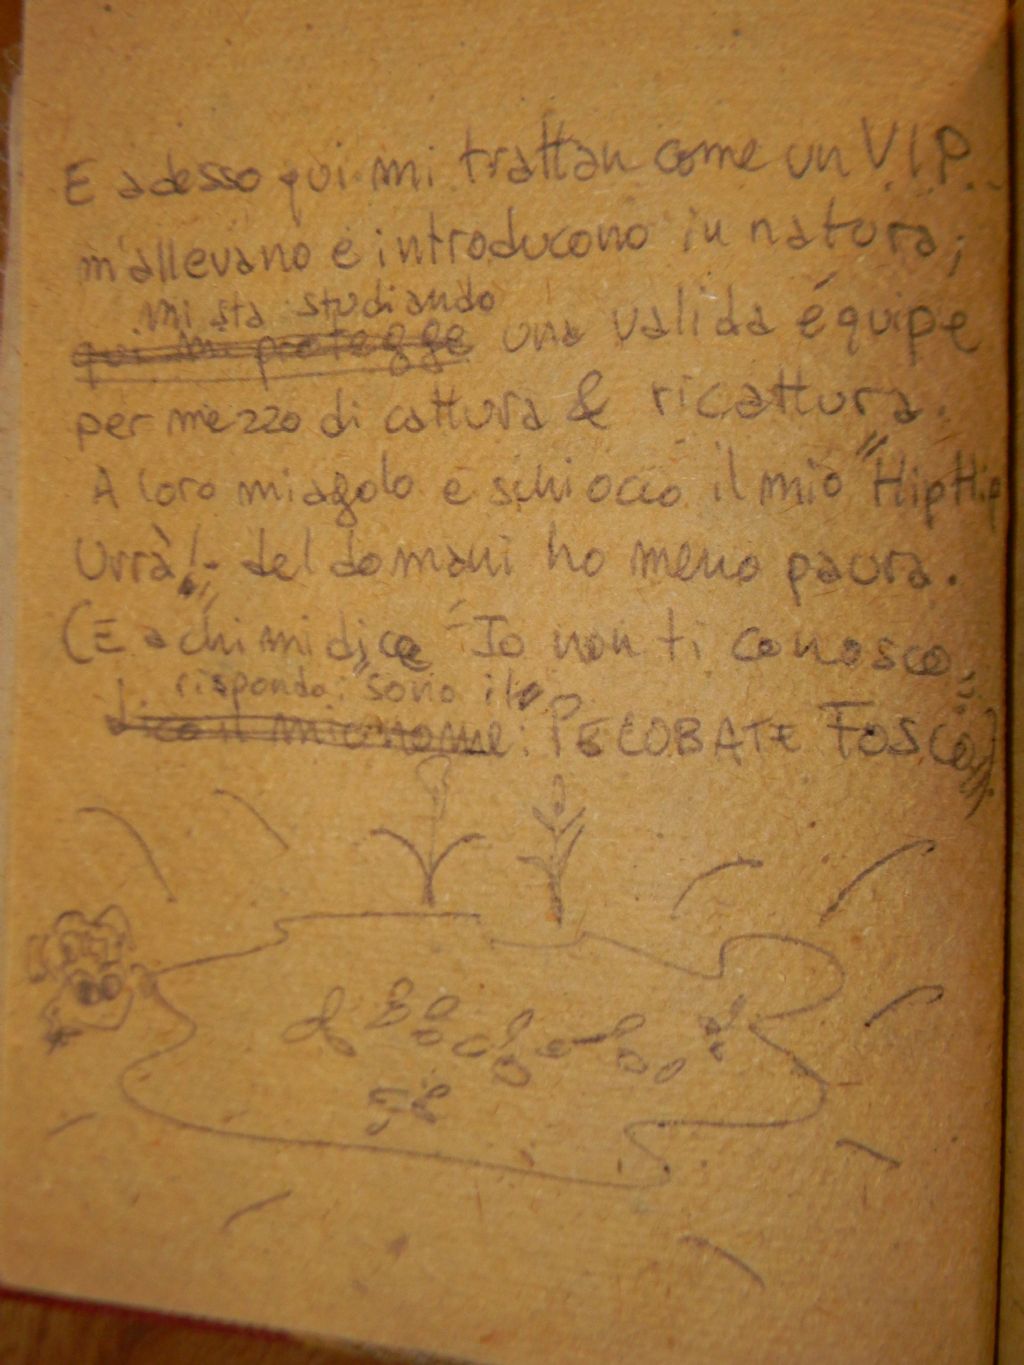 E adesso qui mi trattan come un V.I.P...
m'allevano e introducono in natura;
mi sta studiando
qui mi protegge una valida équipe
per mezzo di cattura & ricattura.
A loro miagolo e schiocco il mio "Hip Hip
Urrà!": del domani ho meno paura.
(E a chi mi dice "Io non ti conosco,"
rispondo: "sono il
dico il mio nome: PELOBATE FOSCO")